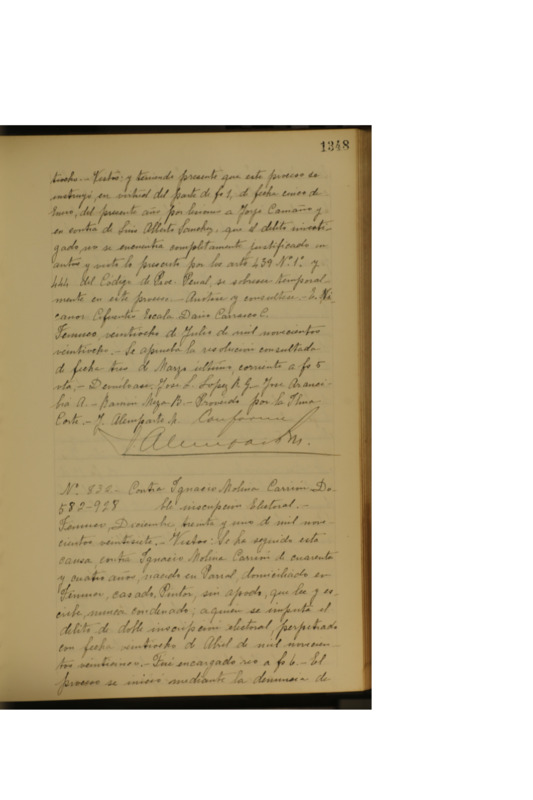 1348
tiocho.- Vistos: y teniendo presente que este proceso se
instruyó en virtud del parte de fs 1, de fecha cinco de
Enero, del presente año, por lesiones a Jorge Camaño y
en contra de Luis Alberto Sanchez. que el delito investi-
gado, no se encuentra completamente justificado en
autos y visto lo prescrito por los arts 439 Nº 1º y
444 del Código de Proc. Penal, se sobresee temporal-
mente en este proceso.- Anótese y consúltese.-
canor Cifuentes Escala Dario Carrasco C.
Temuco, veintiocho de Julio de mil novecientos
veintiocho.- Se aprueba la resolución consultada
de fecha tres de Marzo último, corriente a fs 5
vta.- Devuélvase. José L. Lopez R. G. José Aranci-
bia A.- Ramon Meza B.- Proveido por la Iltma
Corte.- J. Alemparte Conforme
Nº 832.- Contra Ignacio Molina Carrión Do-
582-928 ble inscripcion Electoral.-
Temuco, Diciembre treinta y uno de mil nove-
cientos veintisiete.- Vistos: Se ha seguido esta
causa contra Ignacio Molina Carrión de cuarenta
y cuatro años, nacido en Parral, domiciliado en
Temuco, casado, Pintor, sin apodo, que lee y es-
cribe, nunca condenado; a quien se imputa el
delito de doble inscripción electoral, perpetrado
con fecha veintiocho de Abril de mil novecien-
tos veinticinco.- Fué encargado reo a fs 6.- El
proceso se inició mediante la denuncia de